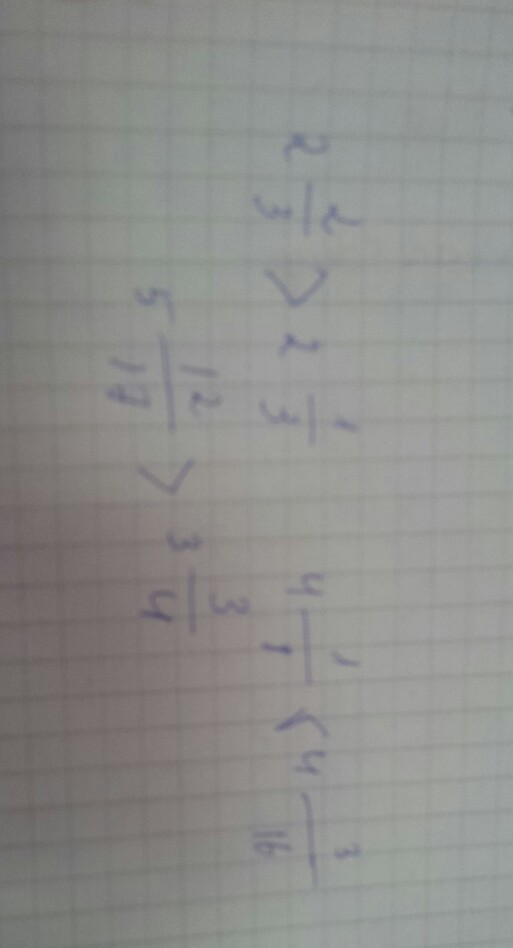 2 2/3 > 2 1/3    4 1/1 < 4 3/16
5 12/17 > 3 3/4